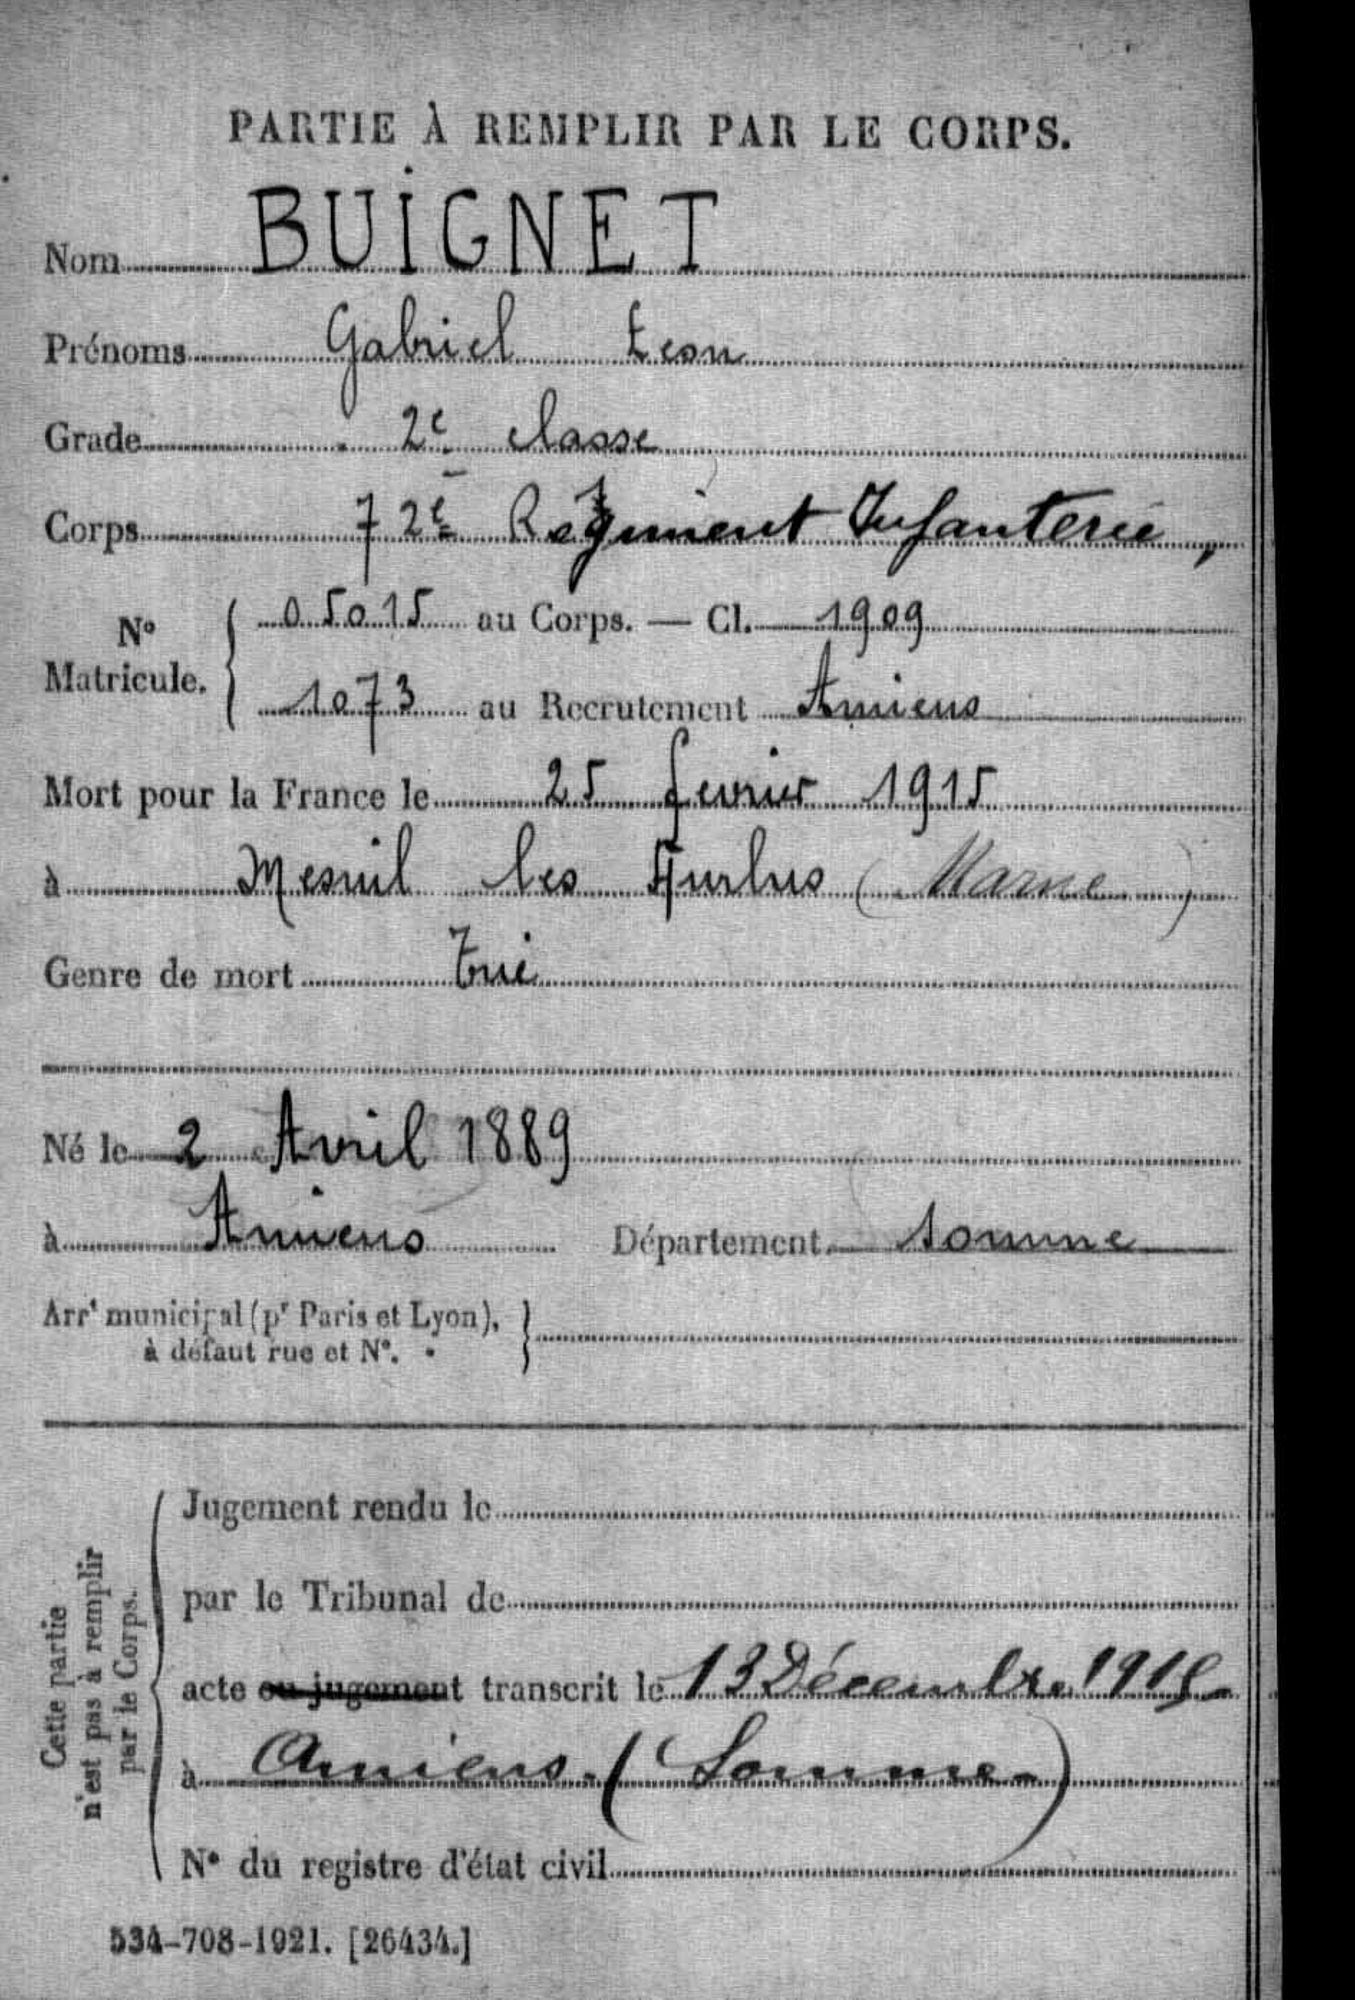 PARTIE À REMPLIR PAR LE CORPS.
Nom BUIGNET
Prénoms Gabriel Léon
Grade 2e classe
Corps 72e Régiment Infanterie,
N° Matricule. { 05015 au Corps. — Cl. 1909
1073 au Recrutement Amiens
Mort pour la France le 25 fevrier 1915
à Mesnil les Hurlus (Marne)
Genre de mort Tué
Né le 2 Avril 1889
à Amiens Département Somme
Arrt municipal (pr Paris et Lyon), }
à défaut rue et N°.
Cette partie
n'est pas à remplir
par le Corps.
Jugement rendu le
par le Tribunal de
acte ou jugement transcrit le 13 Décembre 1915
à Amiens. (Somme)
N° du registre d'état civil
534-708-1921. [26434.]